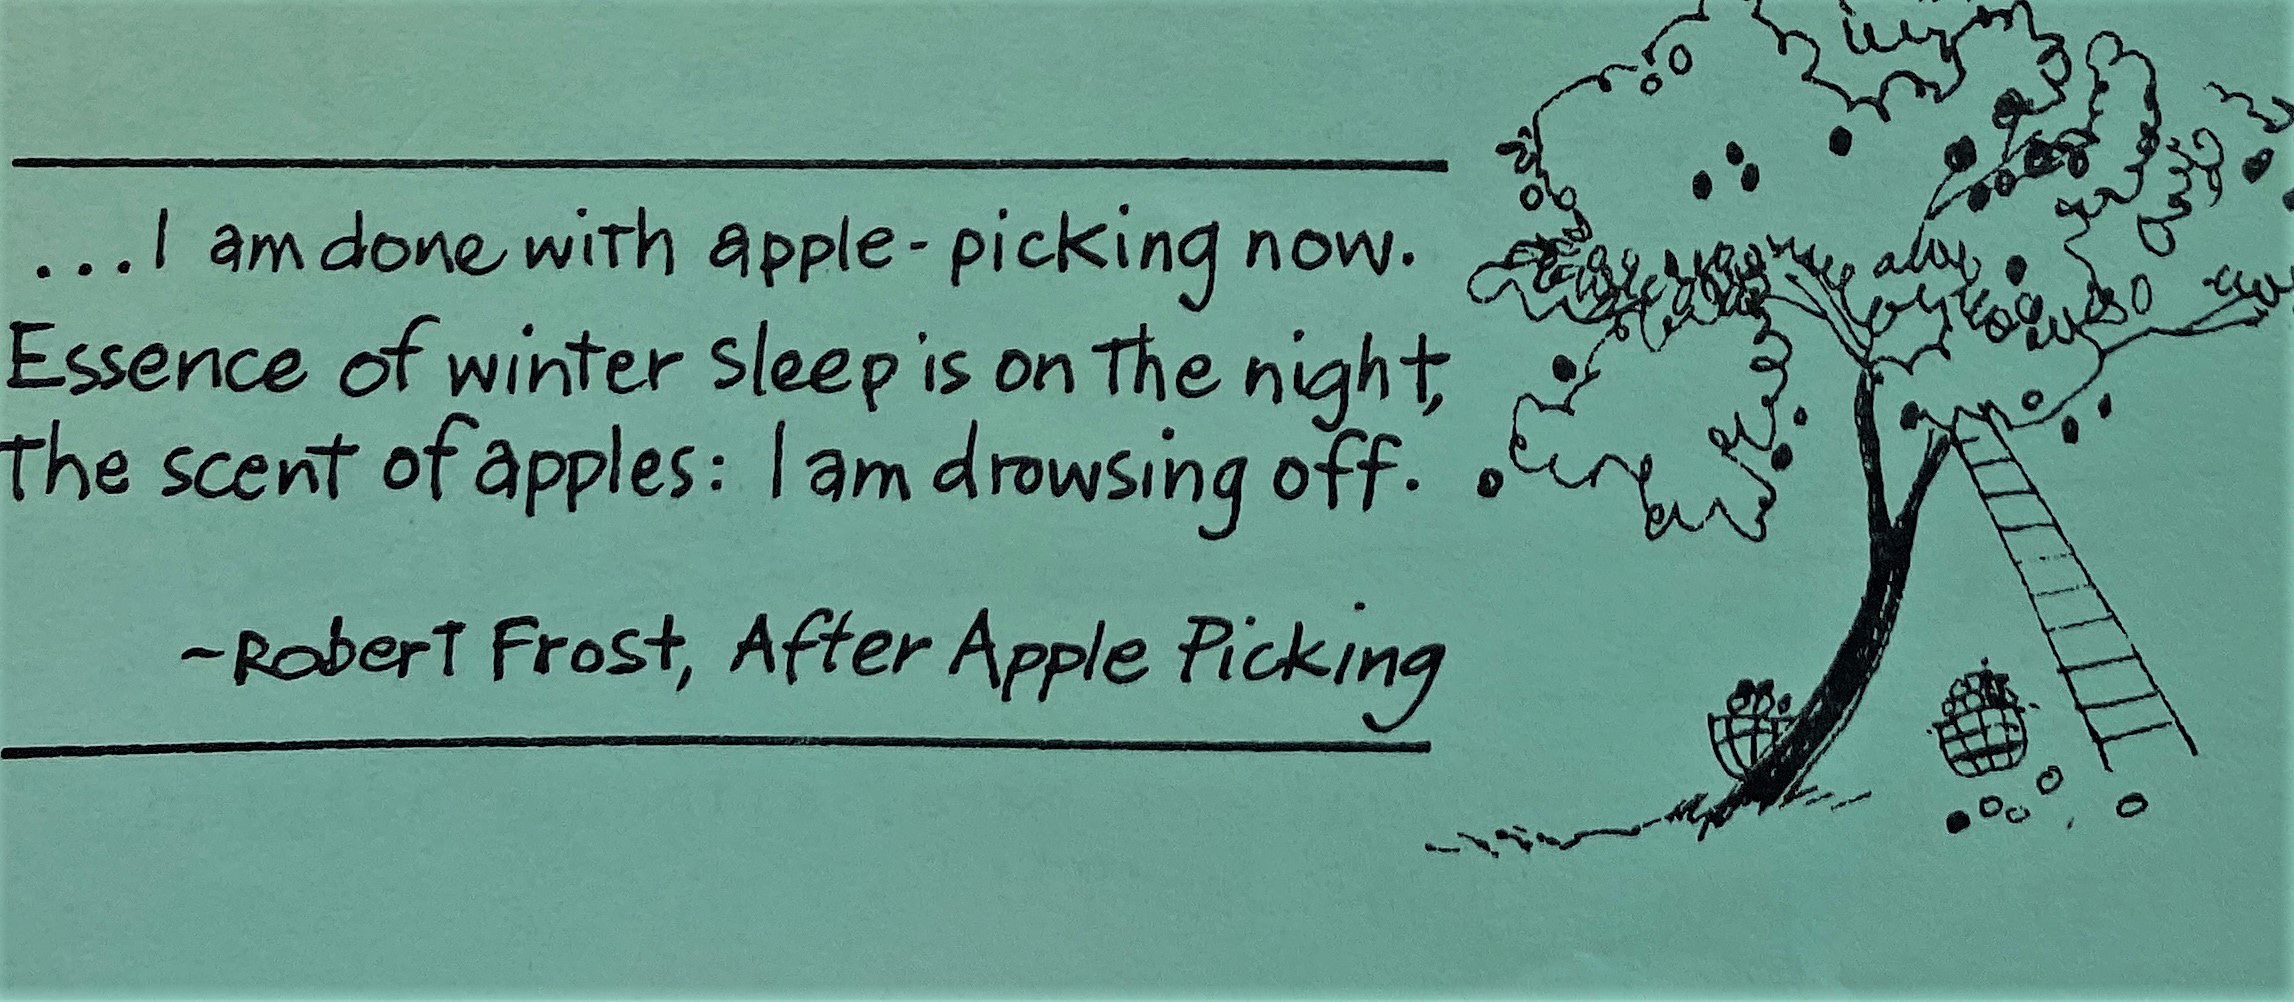 ...I am done with apple-picking now.
Essence of winter sleep is on the night,
the scent of apples: I am drowsing off.
~Robert Frost, After Apple Picking